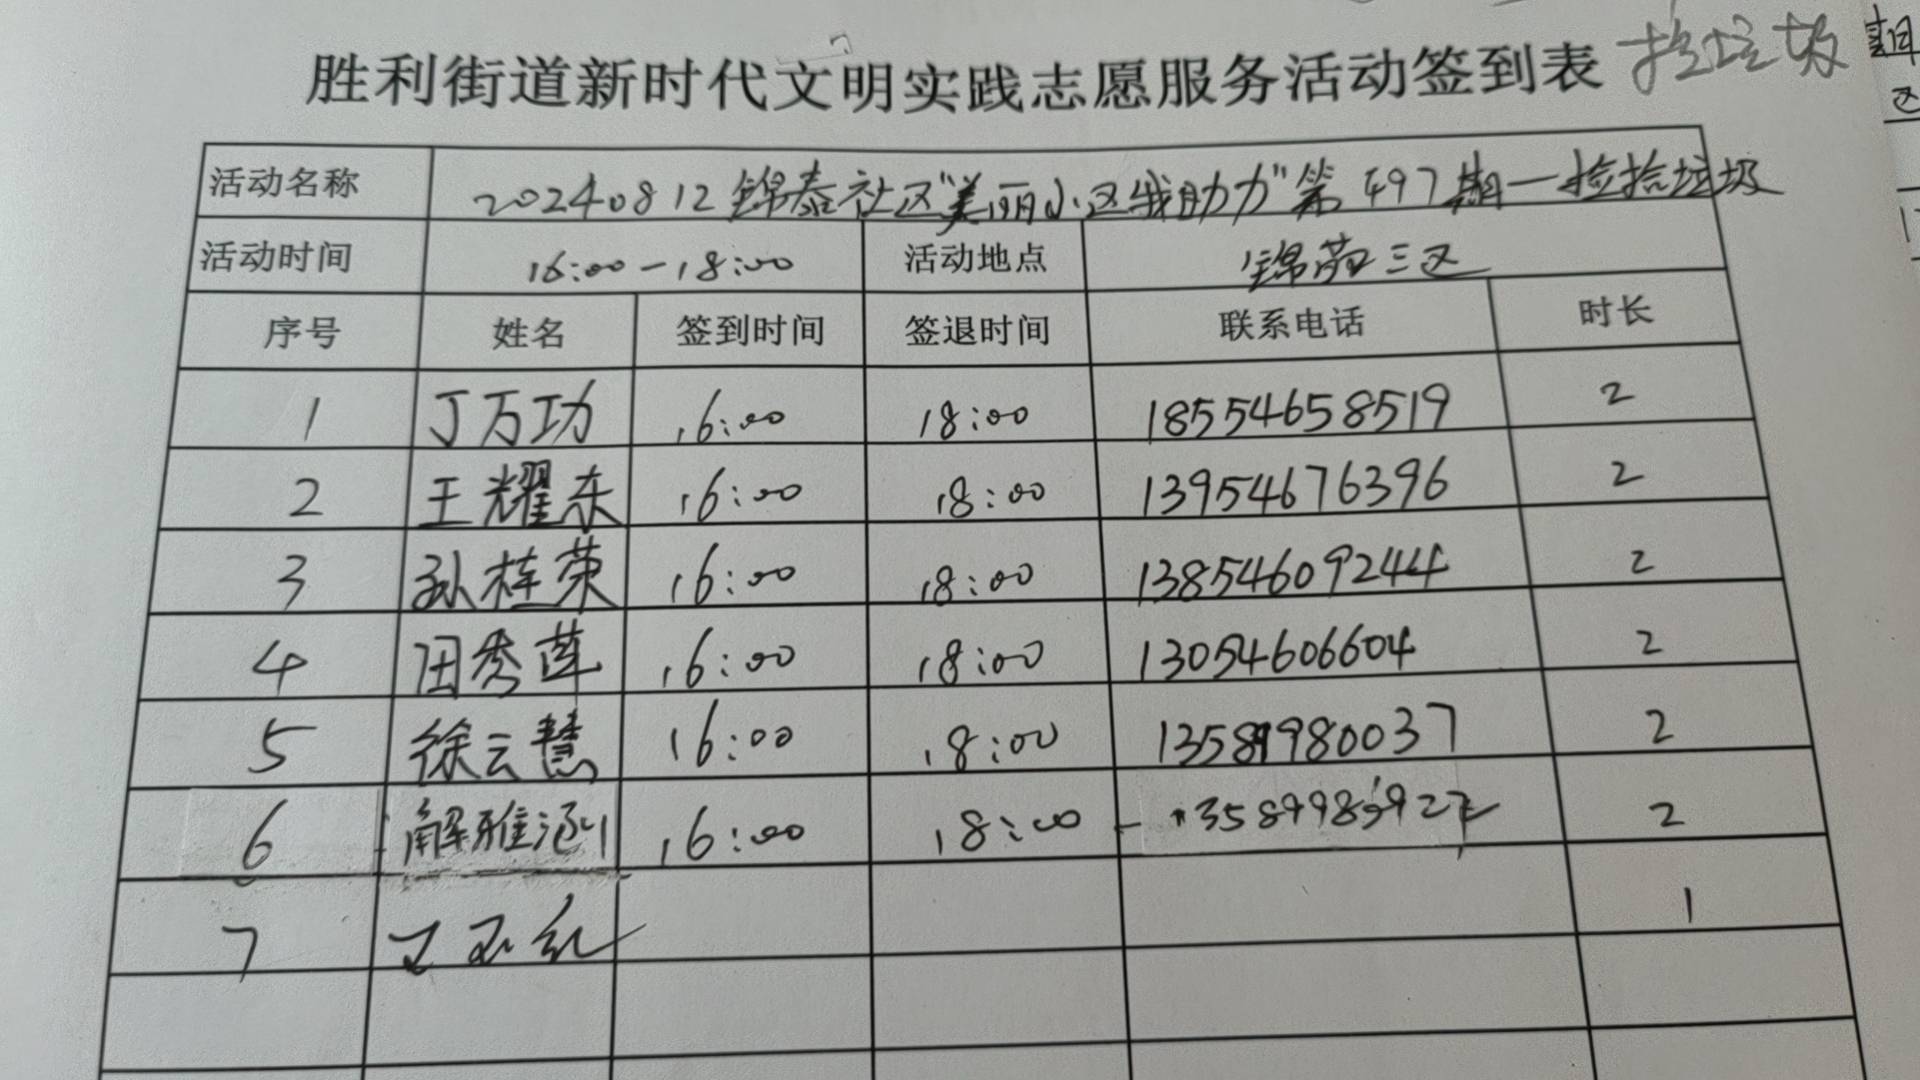 胜利街道新时代文明实践志愿服务活动签到表 捡垃圾
活动名称 20240812锦泰社区"美丽小区我助力"第497期一捡拾垃圾
活动时间 16:00-18:00 活动地点 锦苑三区
序号 姓名 签到时间 签退时间 联系电话 时长
1 丁万功 16:00 18:00 18554658519 2
2 王耀东 16:00 18:00 13954676396 2
3 孙桂荣 16:00 18:00 13854609244 2
4 田秀莲 16:00 18:00 13054606604 2
5 徐云慧 16:00 18:00 13589980037 2
6 解雅涵 16:00 18:00 2
7 1